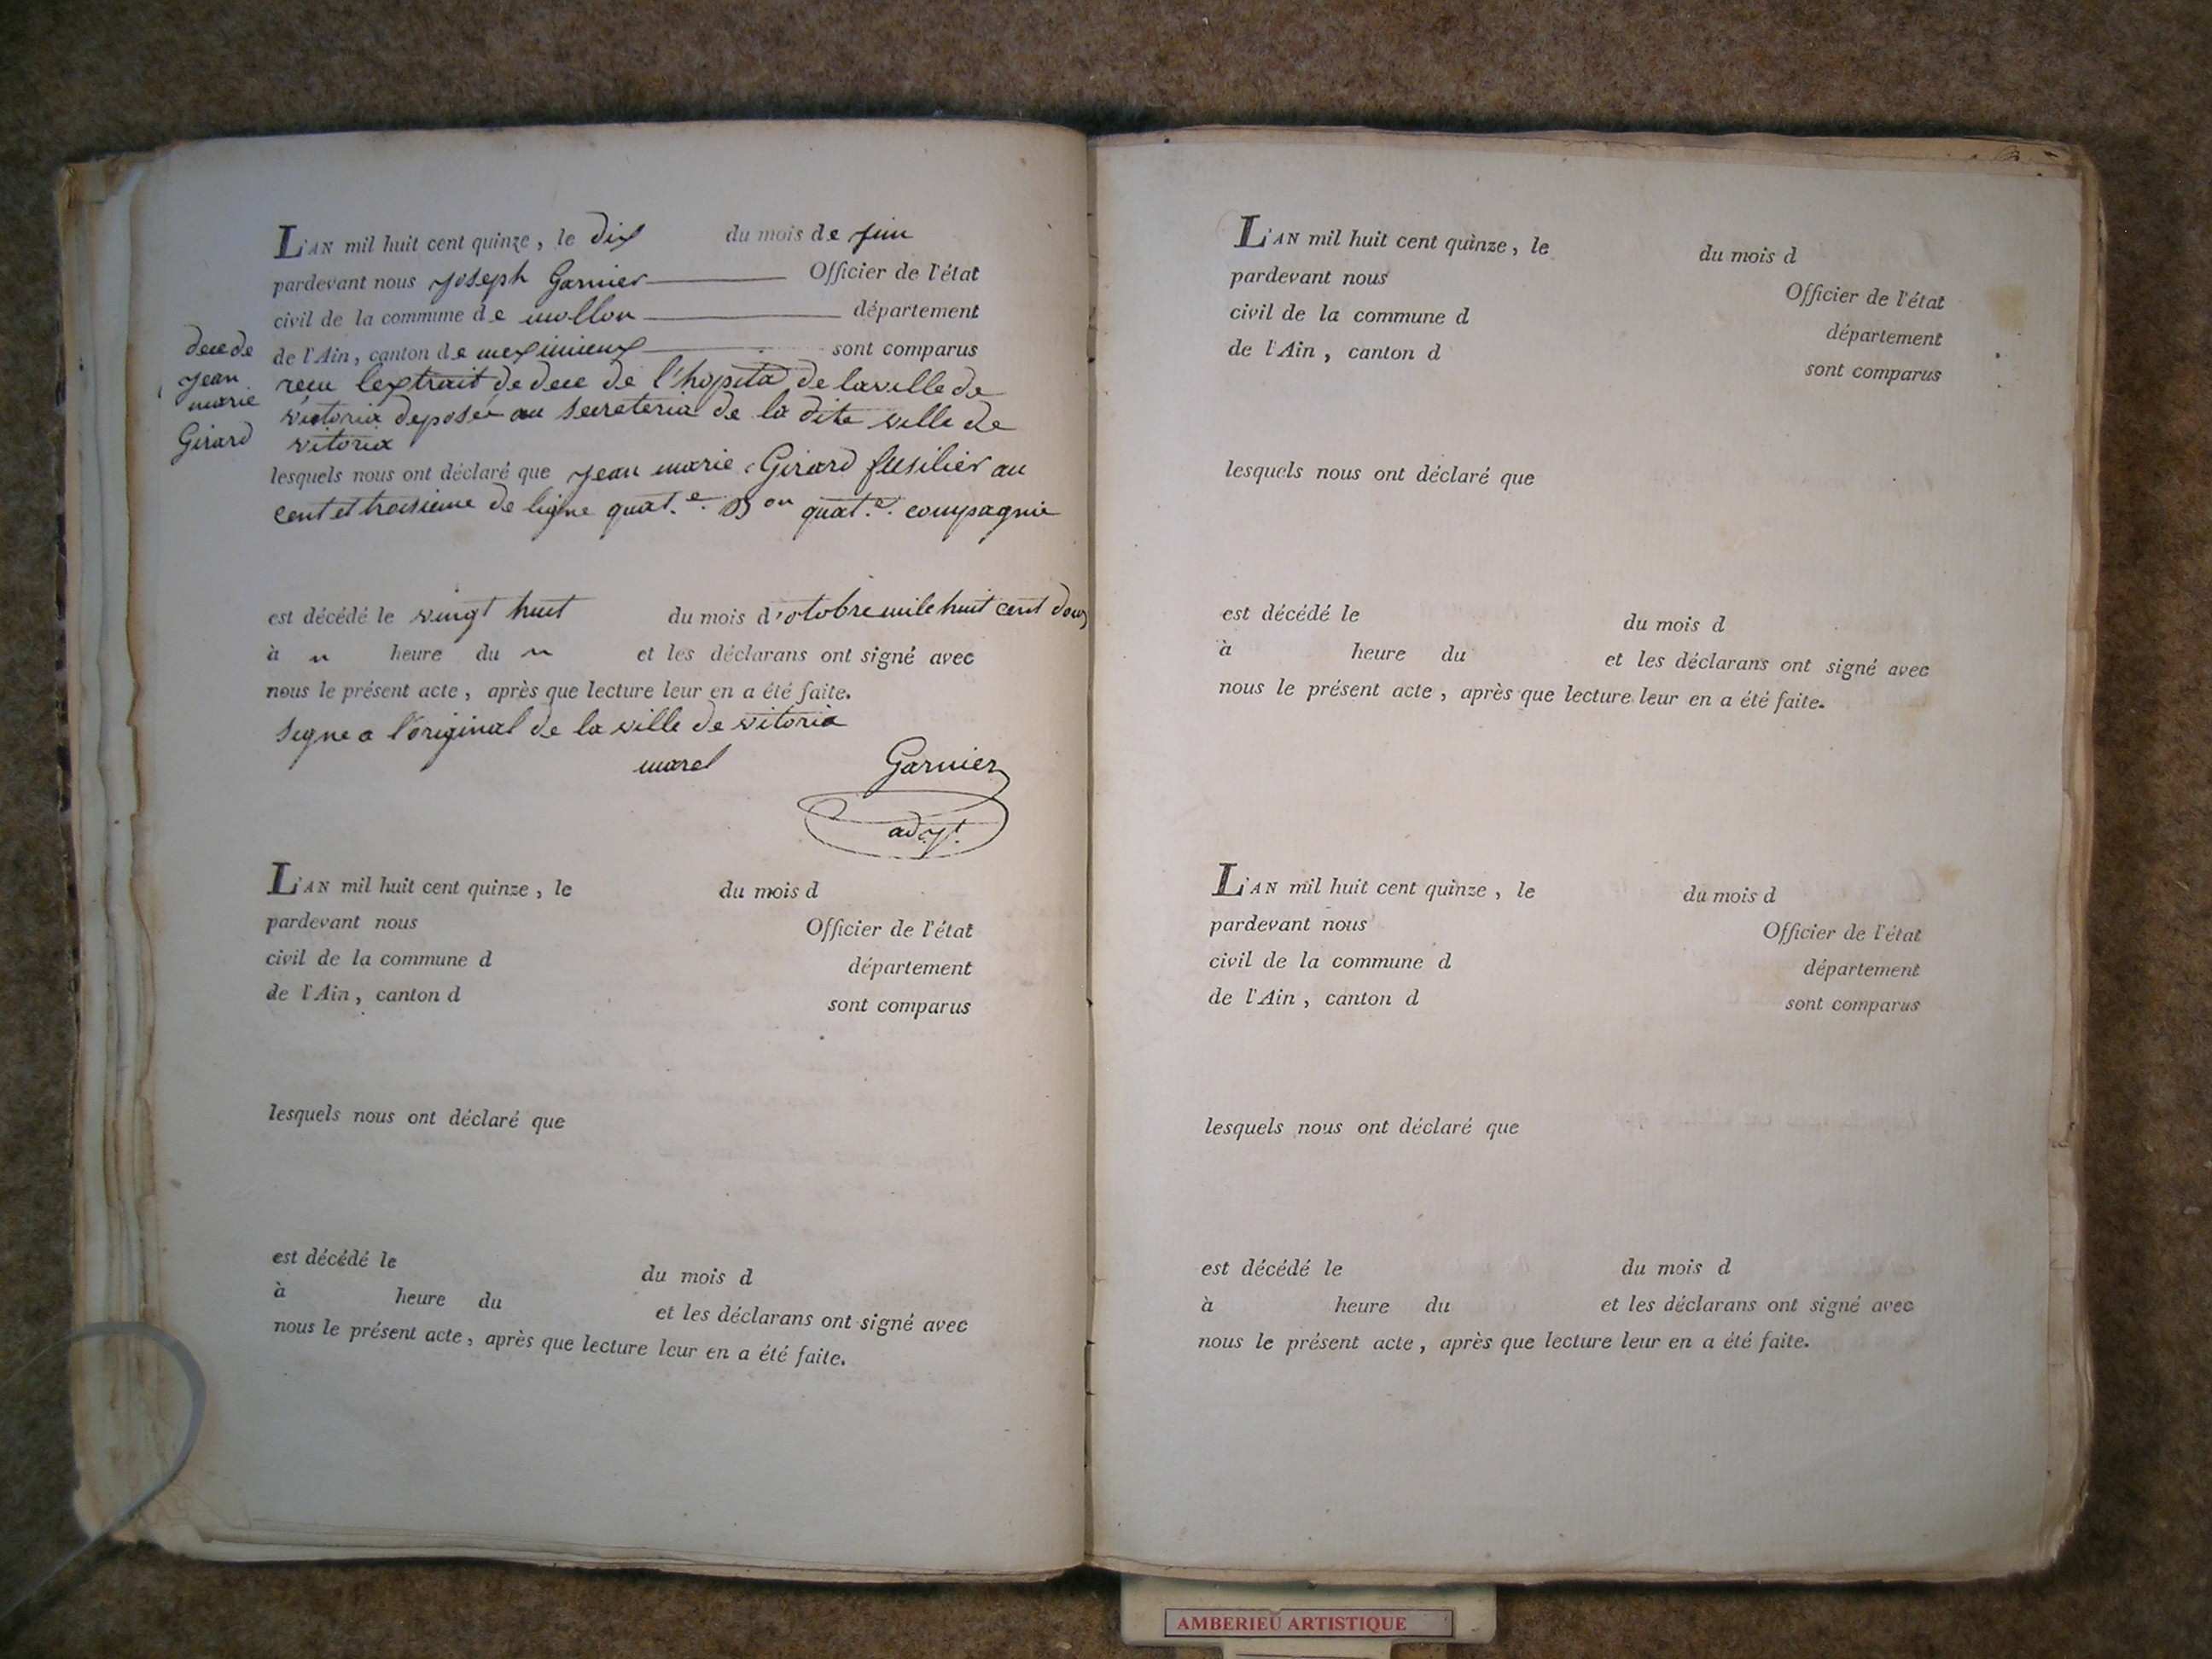 L'AN mil huit cent quinze, le dix du mois de juin
pardevant nous joseph Garnier Officier de l'état
civil de la commune de mollon département
de l'Ain, canton de meximieux sont comparus
decede
jean
marie
Girard
recu lextrait de dece de l'hopital de laville de
victoria deposée au secreteria de la dite ville de
vitoria
lesquels nous ont déclaré que jean marie Girard fusilier au
cent et troisieme de ligne quat.e Bon quat.e compagnie
est décédé le vingt huit du mois d'octobre mile huit cent douz
à " heure du " et les déclarans ont signé avec
nous le présent acte, après que lecture leur en a été faite.
signe a l'original de la ville de vitoria
marel Garnier
adjt.
L'AN mil huit cent quinze, le du mois d
pardevant nous Officier de l'état
civil de la commune d département
de l'Ain, canton d sont comparus
lesquels nous ont déclaré que
est décédé le du mois d
à heure du et les déclarans ont signé avec
nous le présent acte, après que lecture leur en a été faite.
L'AN mil huit cent quinze, le du mois d
pardevant nous Officier de l'état
civil de la commune d département
de l'Ain, canton d sont comparus
lesquels nous ont déclaré que
est décédé le du mois d
à heure du et les déclarans ont signé avec
nous le présent acte, après que lecture leur en a été faite.
L'AN mil huit cent quinze, le du mois d
pardevant nous Officier de l'état
civil de la commune d département
de l'Ain, canton d sont comparus
lesquels nous ont déclaré que
est décédé le du mois d
à heure du et les déclarans ont signé avec
nous le présent acte, après que lecture leur en a été faite.
AMBERIEU ARTISTIQUE